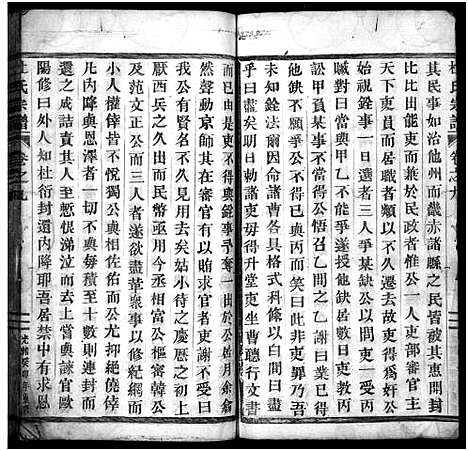 杜氏宗譜
卷之九
其民事如治他州而畿赤諸縣之民皆被其惠開封
比比出能吏而兼於民政者惟公一人吏部審官主
天下吏員而居職者類以不久遷去故吏得為奸公
始視銓事一日選者三人爭某缺公以問吏吏受丙
賕對曰當與甲乙不能爭遂授他缺居數日吏教丙
訟甲負某事不當得公悟召乙問之乙謝曰業已得
他缺不願爭公不得已與丙而笑曰此非吏罪乃吾
未知銓法爾因命諸曹各具格式科條以白問曰盡
乎曰盡矣明日勅諸吏毋得升堂使坐曹聽行文書
而已由是吏不得與銓事予奪一出於公居月餘翕
然聲動京師其在審官有以賄求官者吏謝不受曰
我公有賢名不久見用去矣姑小待之慶歷之初上
厭西兵之久出而民弊亟用今丞相富公樞密韓公
及范文正公而三人者遂欲盡革眾事以修紀綱而
小人權倖皆不悅獨公與相佐佑而公尤抑絶僥倖
凡內降與恩澤者一切不與每積至十數則連封而
還之或詰責其人至慙恨涕泣而去上嘗與諫官歐
陽修曰外人知杜衍封還內降耶吾居禁中有求恩
杜氏宗譜
卷之九